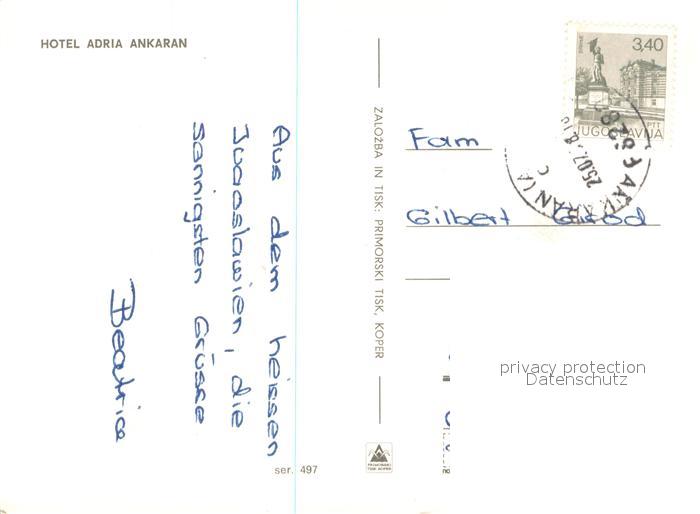 HOTEL ADRIA ANKARAN
Aus dem heissen
Jugoslawien, die
Sannigsten Grüsse
Beatrice
ser. 497
ZALOŽBA IN TISK: PRIMORSKI TISK, KOPER
PRIMORSKI
TISK KOPER
3,40
PTT
JUGOSLAVIJA
ANKARAN
25.07.78.
Fam
Gilbert Girod
privacy protection
Datenschutz